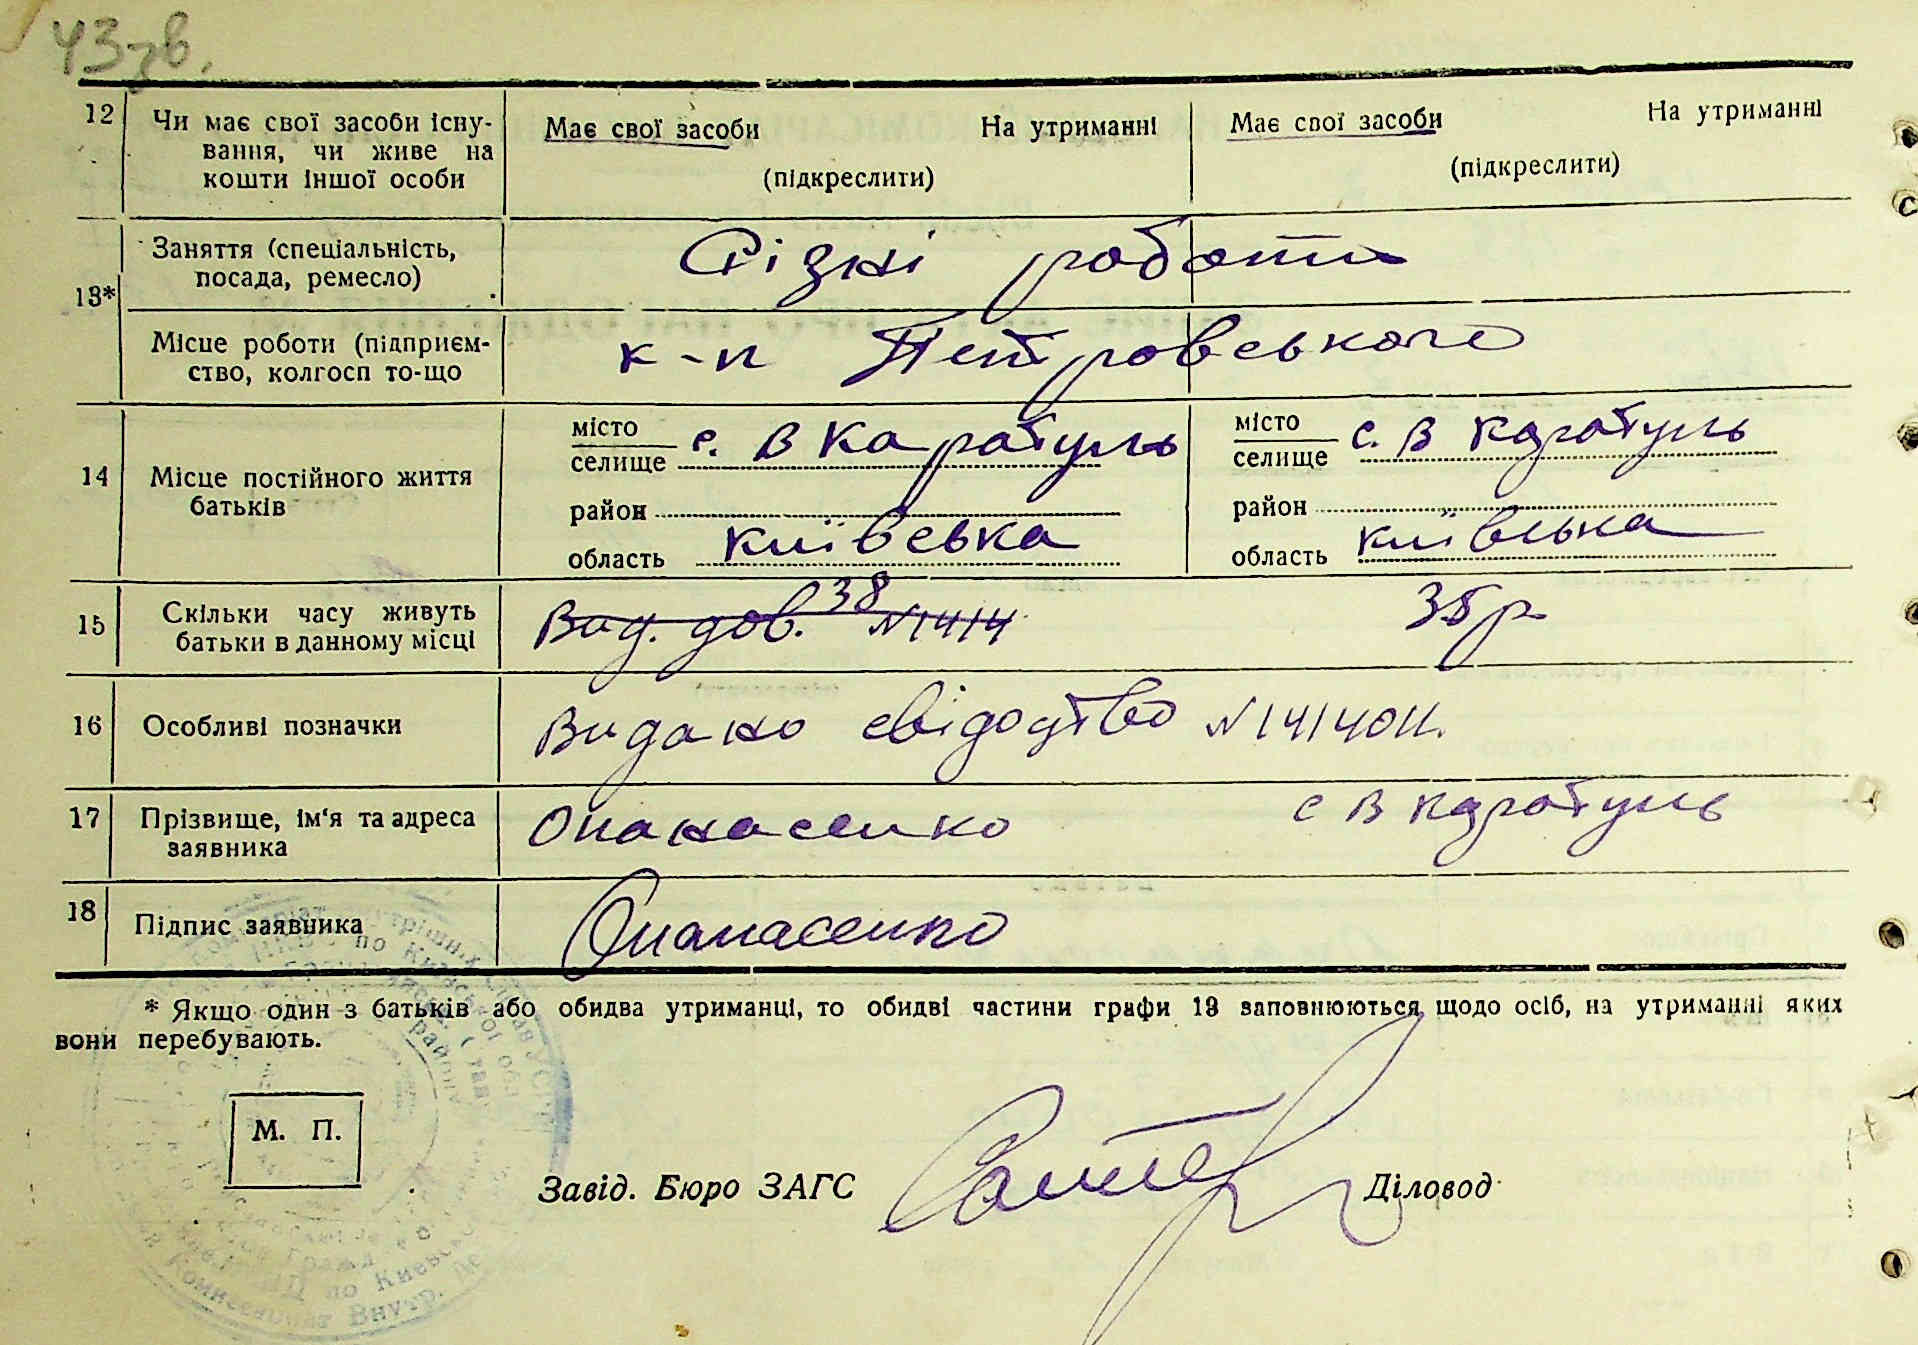 43зв.
12 Чи має свої засоби існу-
вання, чи живе на
кошти іншої особи
Має свої засоби На утриманні
(підкреслити)
Має свої засоби На утриманні
(підкреслити)
13* Заняття (спеціальність,
посада, ремесло)
Різні роботи
Місце роботи (підприєм-
ство, колгосп то-що
к-п Петровського
14 Місце постійного життя
батьків
місто
селище с. В Каратуль
район
область київська
місто
селище с. В Каратуль
район
область київська
15 Скільки часу живуть
батьки в данному місці
Вид. дов. 38 №1414
35р
16 Особливі позначки
Видано свідодтво №141401
17 Прізвище, ім'я та адреса
заявника
Опанасенко с В Каратуль
18 Підпис заявника
Опанасенко
* Якщо один з батьків або обидва утриманці, то обидві частини графи 13 заповнюються щодо осіб, на утриманні яких
вони перебувають.
М. П.
Завід. Бюро ЗАГС Діловод